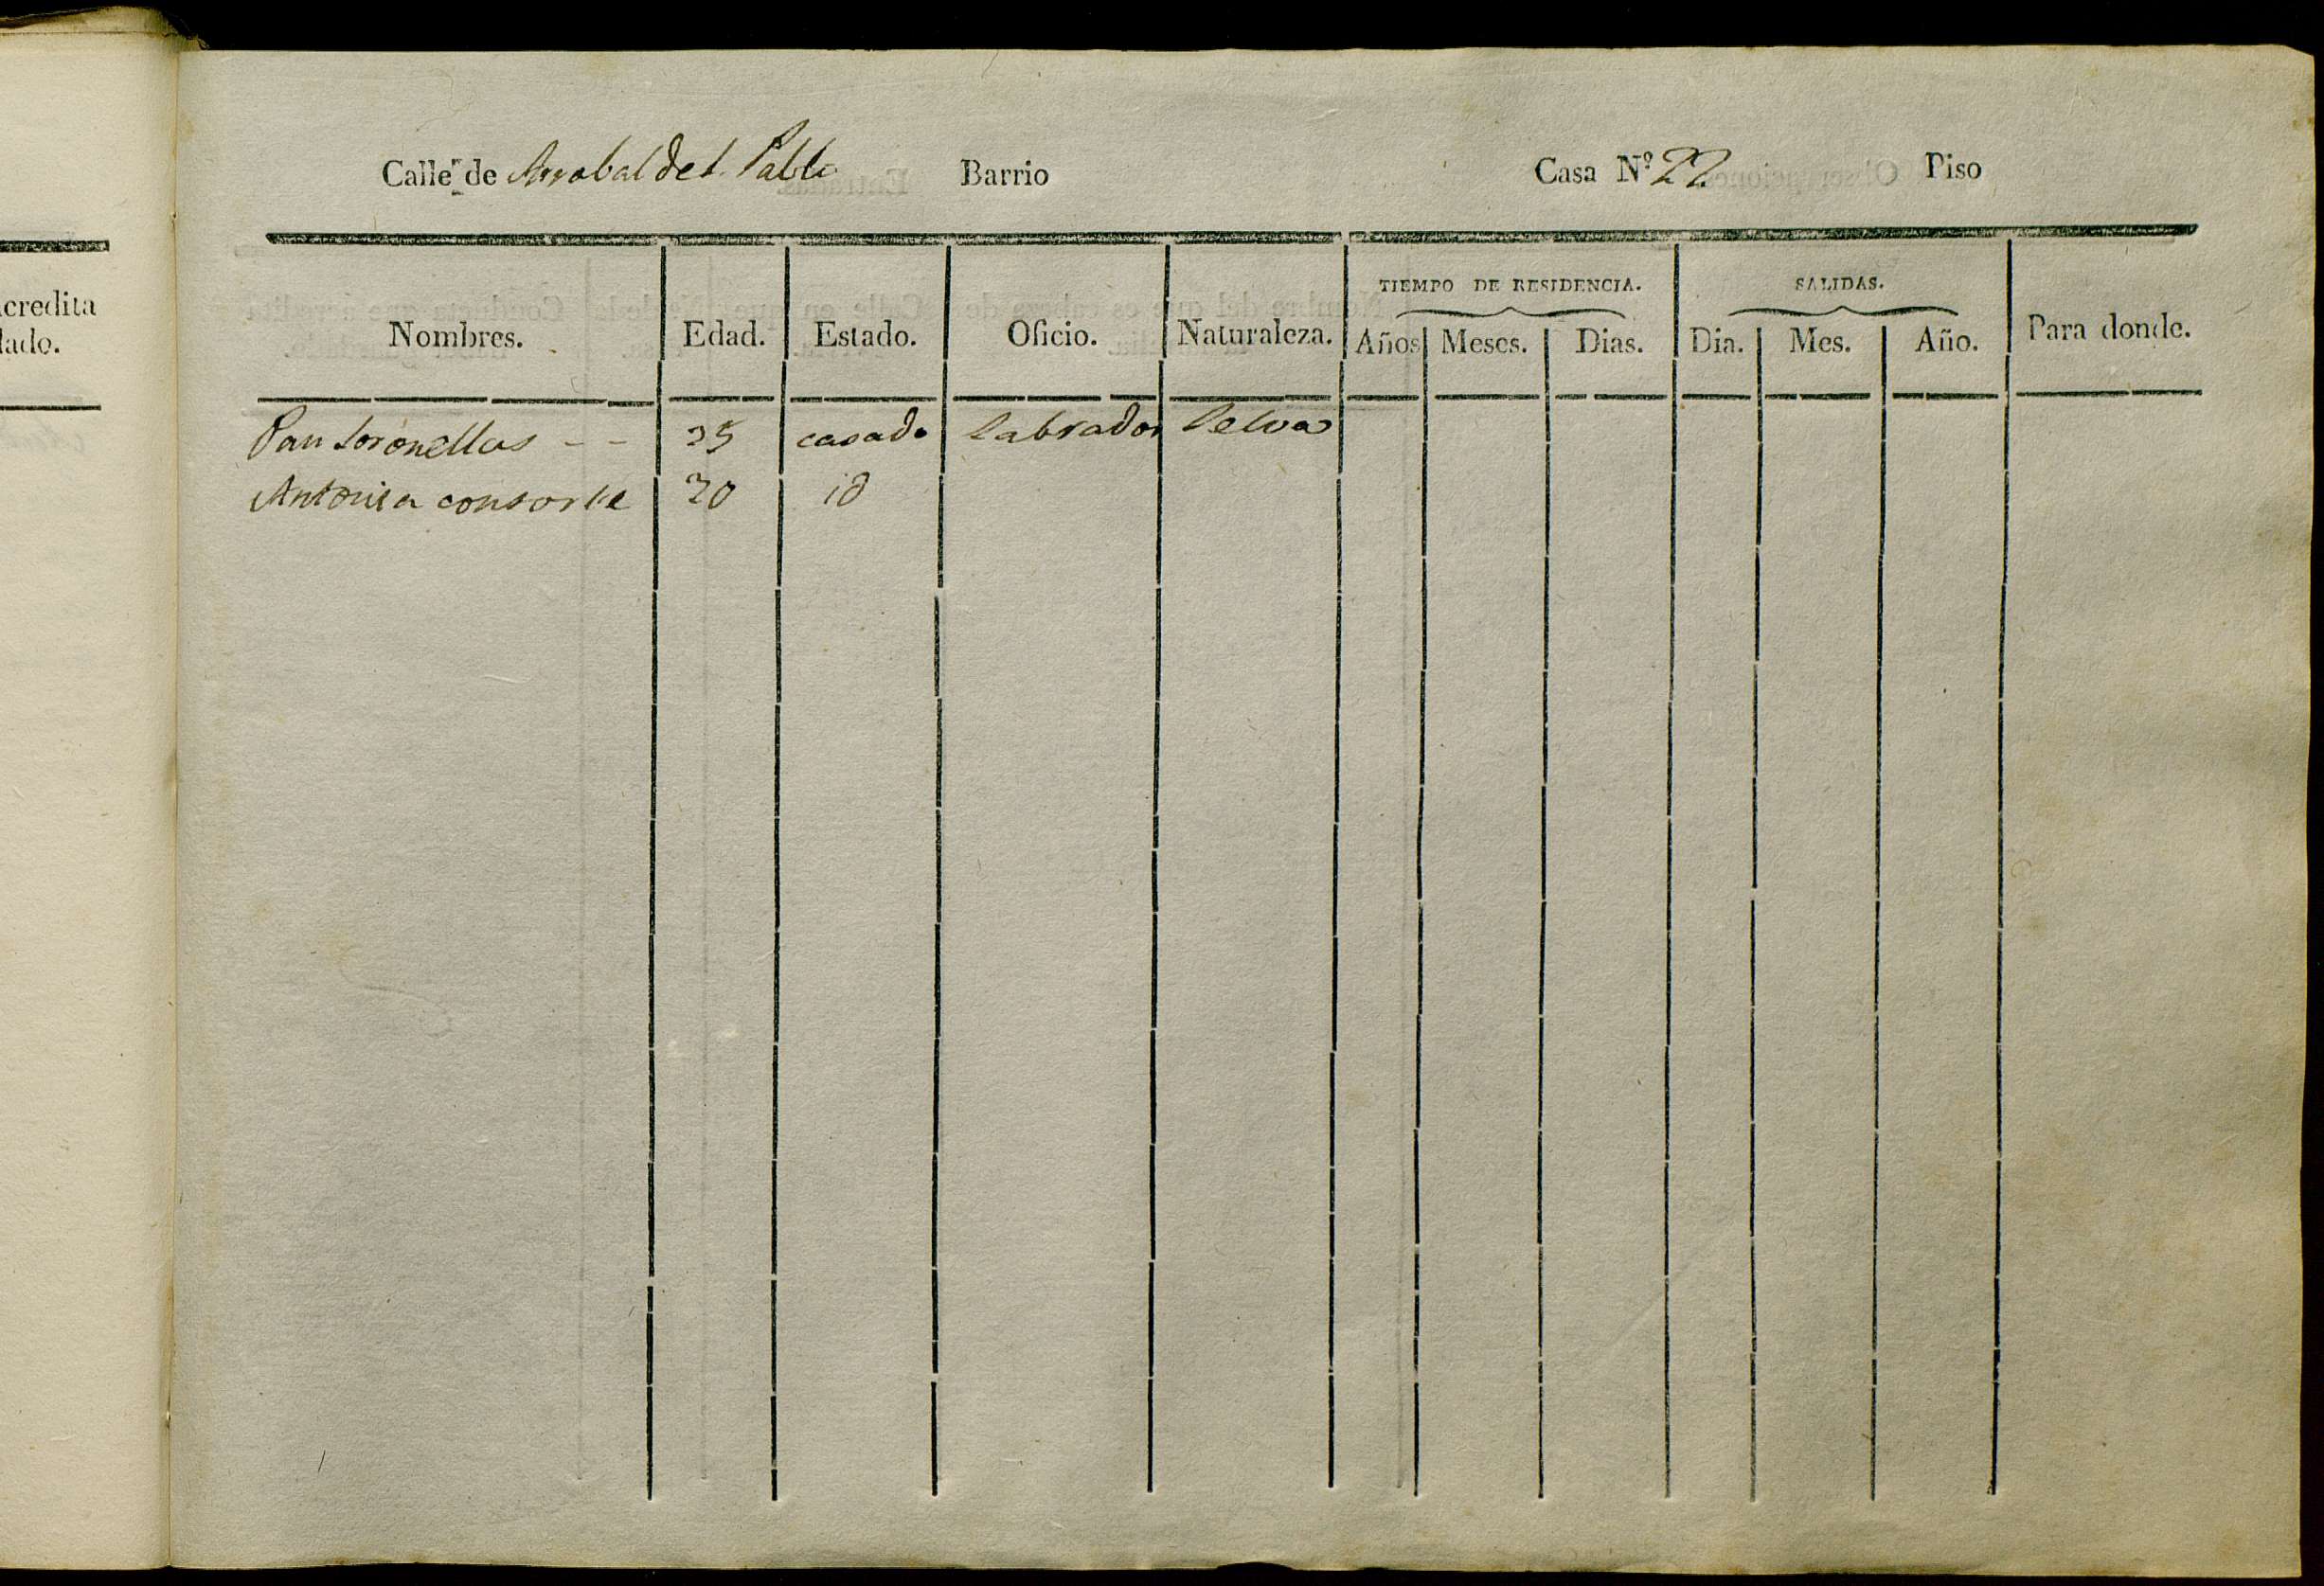 Calle de Arrabal de S. Pablo Barrio Casa N.º 22 Piso
Nombres. Edad. Estado. Oficio. Naturaleza. TIEMPO DE RESIDENCIA. Años Meses. Dias. SALIDAS. Dia. Mes. Año. Para donde.
Pau Coronellas - - 35 casado labrador Selva
Antonia consorte 30 id
acredita
lado.